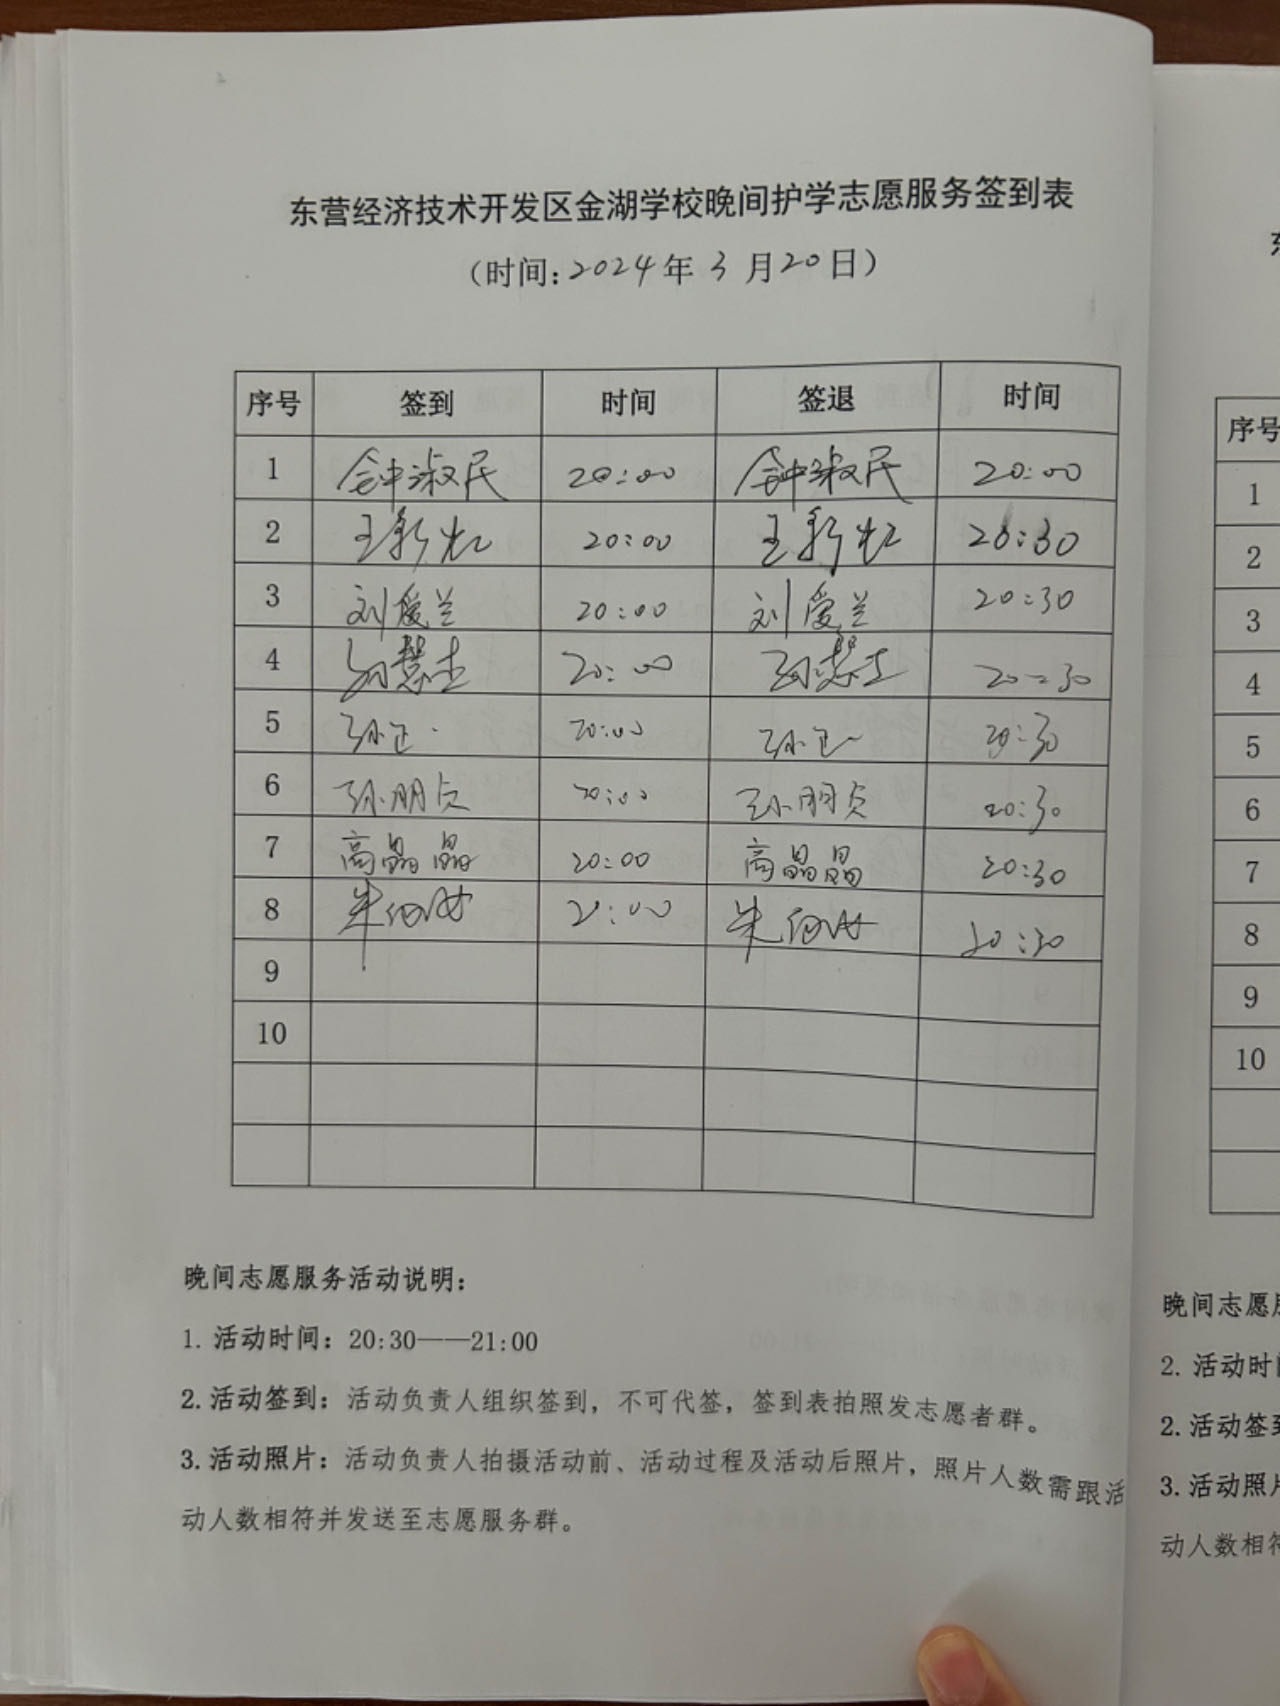 东营经济技术开发区金湖学校晚间护学志愿服务签到表
(时间:2024年3月20日)
序号 签到 时间 签退 时间
1 钟淑民 20:00 钟淑民 20:00
2 王新 20:00 王新 20:30
3 刘爱兰 20:00 刘爱兰 20:30
4 孙慧 20:00 孙慧 20:30
5 孙正一 20:00 孙正一 20:30
6 孙朋贞 20:00 孙朋贞 20:30
7 高晶晶 20:00 高晶晶 20:30
8 朱 朱 20:30
9
10
晚间志愿服务活动说明:
1. 活动时间: 20:30——21:00
2. 活动签到: 活动负责人组织签到, 不可代签, 签到表拍照发志愿者群。
3. 活动照片: 活动负责人拍摄活动前、活动过程及活动后照片, 照片人数需跟活
动人数相符并发送至志愿服务群。
序号
1
2
3
4
5
6
7
8
9
10
晚间志愿
2. 活动时
2. 活动签
3. 活动照
动人数相